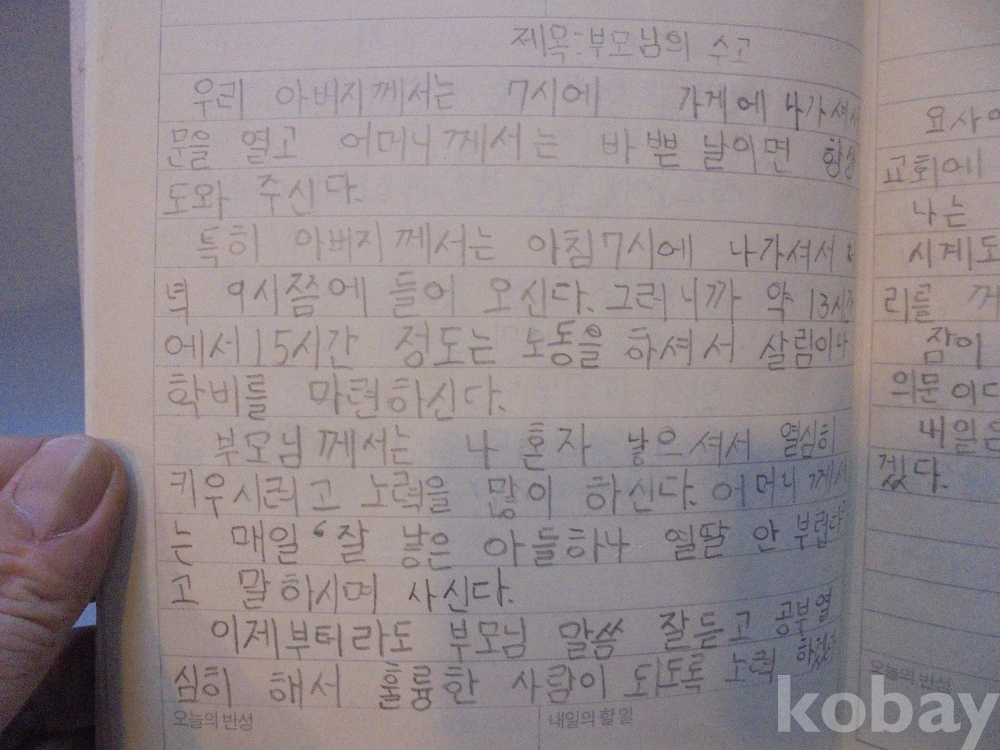 제목:부모님의 수고
우리 아버지께서는 7시에 가게에 나가셔서
문을 열고 어머니께서는 바쁜 날이면 항상
도와 주신다.
특히 아버지께서는 아침7시에 나가셔서 저
녁 9시쯤에 들어 오신다.그러니까 약 13시간
에서15시간 정도는 노동을 하셔서 살림이나
학비를 마련하신다.
부모님께서는 나 혼자 낳으셔서 열심히
키우시려고 노력을 많이 하신다.어머니께서
는 매일 ‘잘 낳은 아들하나 열딸 안 부럽다’
고 말하시며 사신다.
이제부터라도 부모님 말씀 잘듣고 공부열
심히 해서 훌륭한 사람이 되도록 노력 하겠다
오늘의 반성
내일의 할 일
교회에
나는
시계도
리를
잠이
의문이다
내일은
겠다.
오늘의 반성
kobay